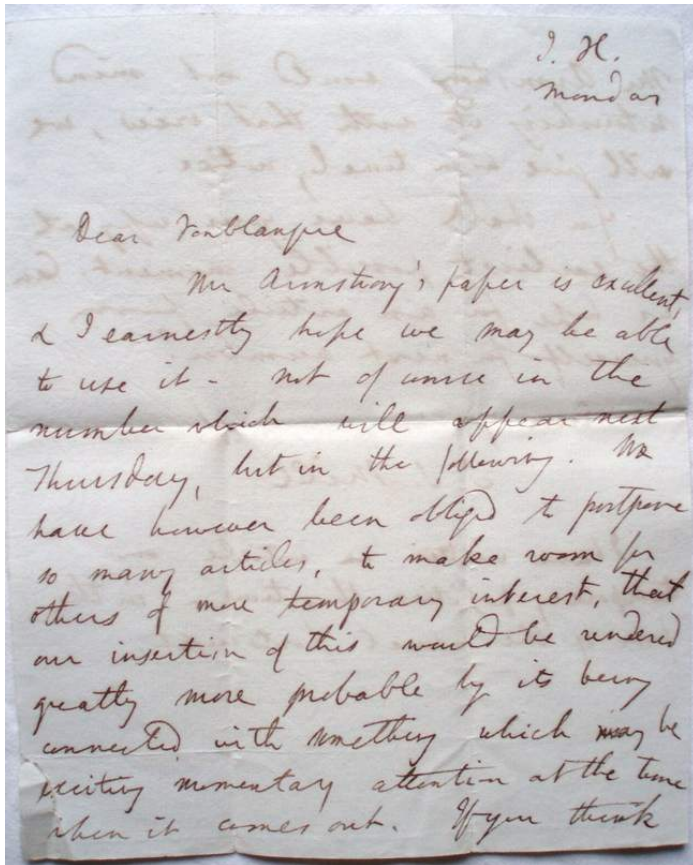 I. H.
Monday
Dear Fonblanque
Mr Armstrong's paper is excellent,
& I earnestly hope we may be able
to use it - not of course in the
number which will appear next
Thursday, but in the following. We
have however been obliged to postpone
so many articles, to make room for
others of more temporary interest, that
our insertion of this would be rendered
greatly more probable by its being
connected with something which may be
exciting momentary attention at the time
when it comes out. If you think